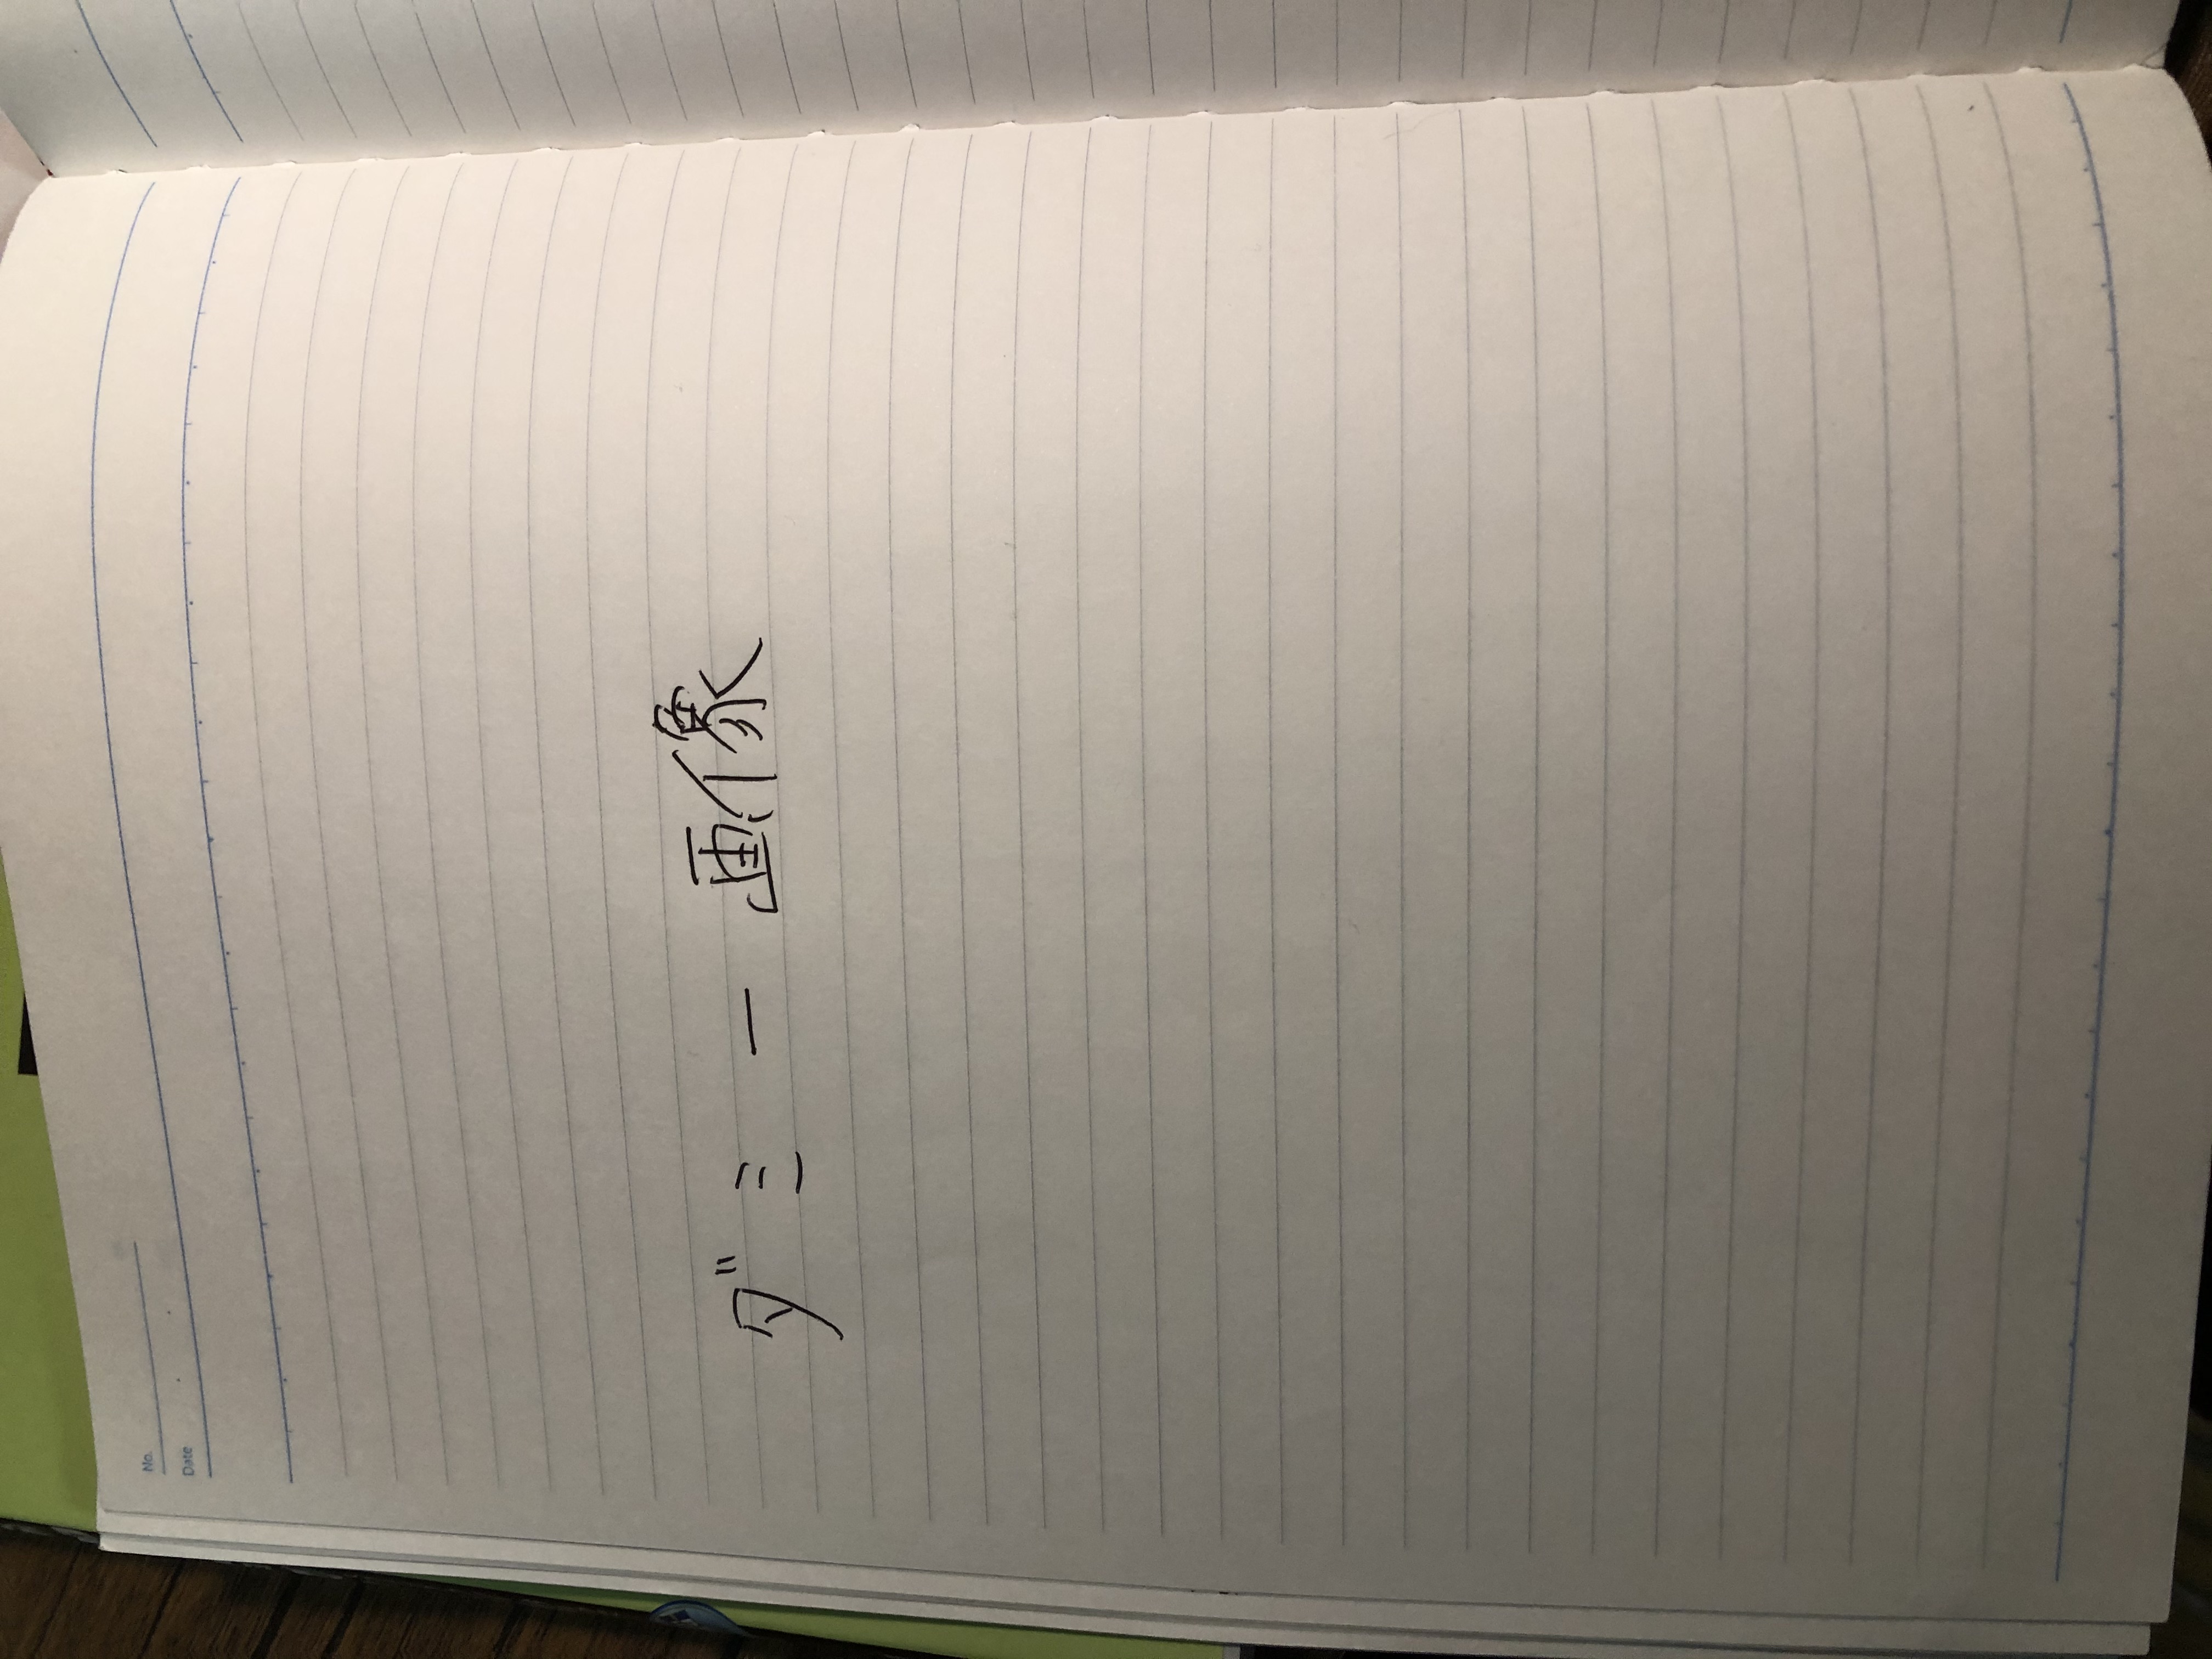 No.
Date
ダミー画像